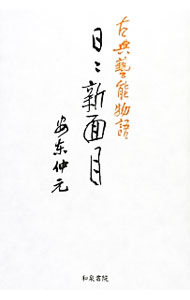 古典藝能物語
日々新面目
安东仲元
和泉書院